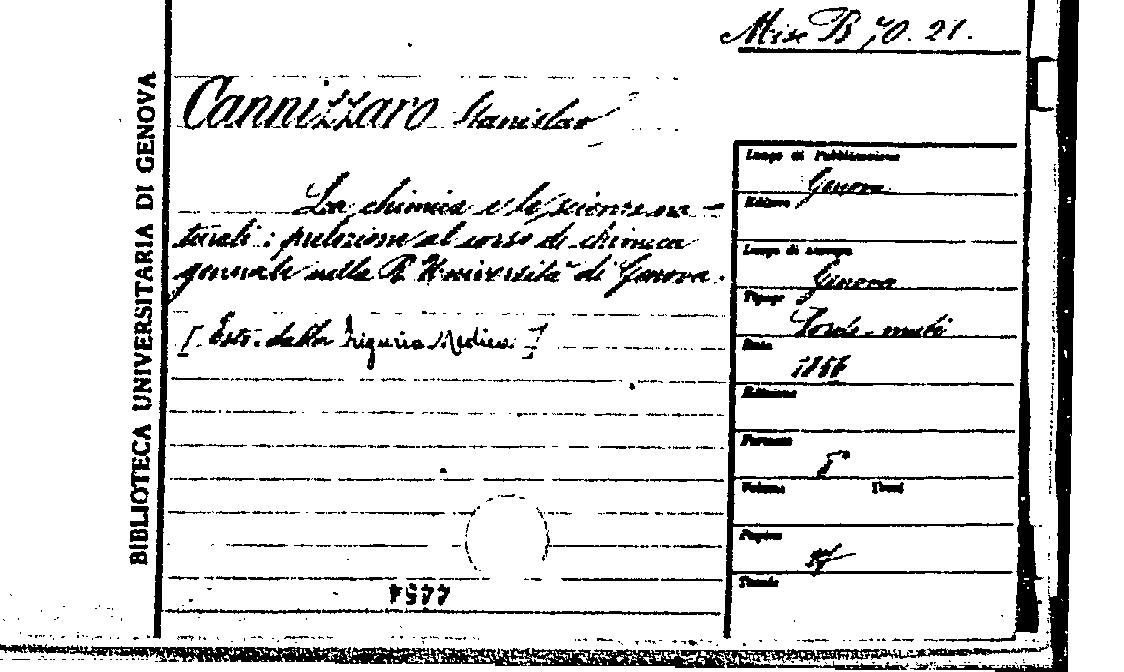 Misc B 70. 21.
BIBLIOTECA UNIVERSITARIA DI GENOVA
Cannizzaro Stanislao
La chimica e le scienze na-
turali: prelezione al corso di chimica
generale nella R. Università di Genova.
[Estr. dalla Liguria Medica]
Luogo di Pubblicazione
Genova
Editore
Luogo di stampa
Genova
Tipogr
Sordo-muti
Data
Edizione
Formato
8°
Volume
Pagine